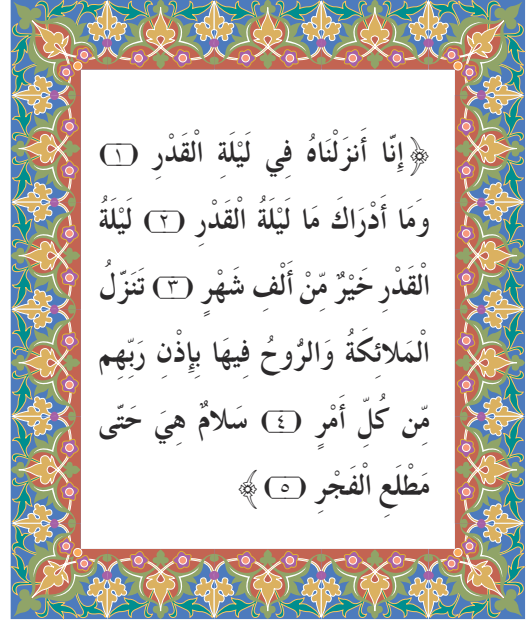 ﴿ إِنَّا أَنزَلْنَاهُ فِي لَيْلَةِ الْقَدْرِ (١)
وَمَا أَدْرَاكَ مَا لَيْلَةُ الْقَدْرِ (٢) لَيْلَةُ
الْقَدْرِ خَيْرٌ مِّنْ أَلْفِ شَهْرٍ (٣) تَنَزَّلُ
الْمَلائِكَةُ وَالرُّوحُ فِيهَا بِإِذْنِ رَبِّهِم
مِّن كُلِّ أَمْرٍ (٤) سَلامٌ هِيَ حَتَّى
مَطْلَعِ الْفَجْرِ (٥) ﴾